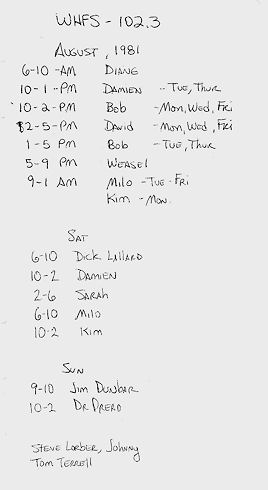 WHFS - 102.3
AUGUST, 1981
6-10 -AM DIANE
10-1-PM DAMIEN -- TUE, THUR
10-2-PM BOB -MON, WED, FRI
2-5-PM DAVID -MON, WED, FRI
1-5 PM BOB -TUE, THUR
5-9 PM WEASEL
9-1 AM MILO -TUE-FRI
KIM -MON.
SAT
6-10 DICK LILLARD
10-2 DAMIEN
2-6 SARAH
6-10 MILO
10-2 KIM
SUN
9-10 JIM DUNBAR
10-2 DR DREAD
STEVE LORBER, JOHNNY
TOM TERRELL